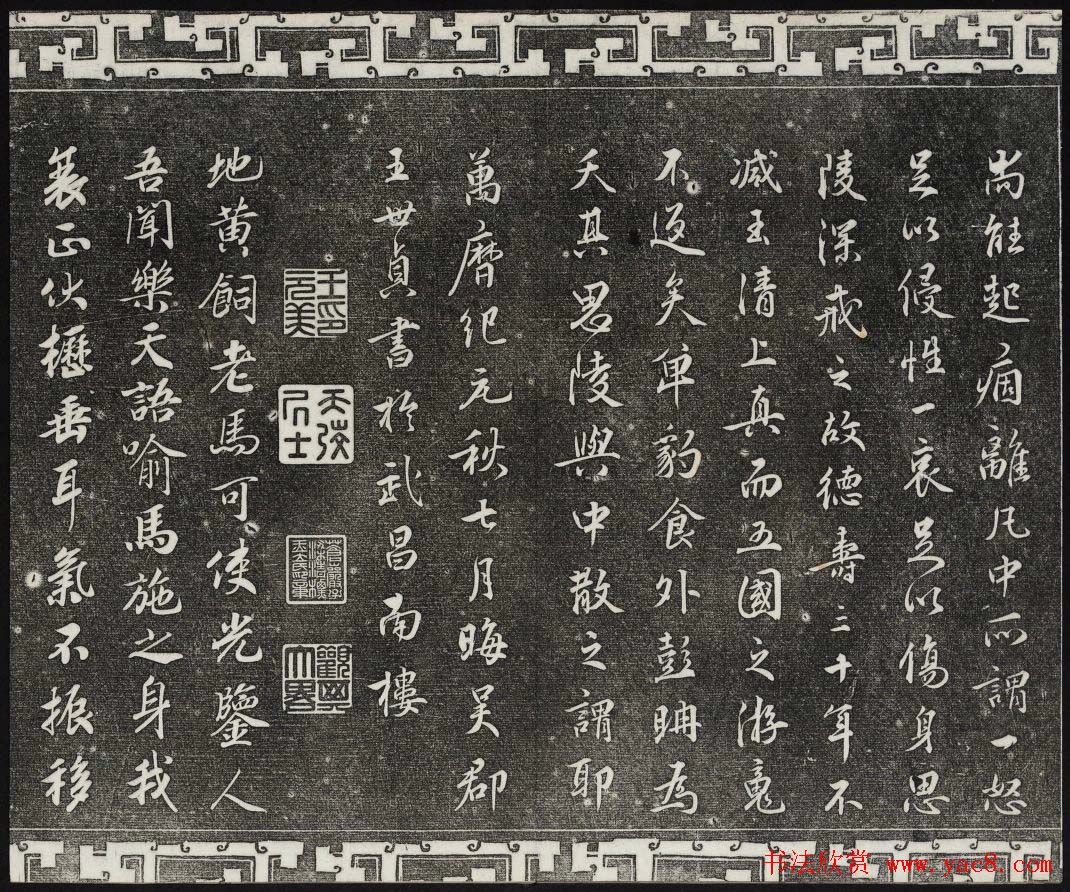 尚能起痼離凡中所謂一怒
足以侵性一哀足以傷身思
陵深戒之故德壽三十年不
減玉清上真而五國之游竟
不返矣單豹食外彭聃為
夭其思陵與中散之謂耶
萬曆紀元秋七月晦吳郡
王世貞書於武昌南樓
王元美印
天弢居士
地黃飼老馬可使光鑒人
吾聞樂天語喻馬施之身我
衰正伏櫪垂耳氣不振移
书法欣赏 www.yac8.com